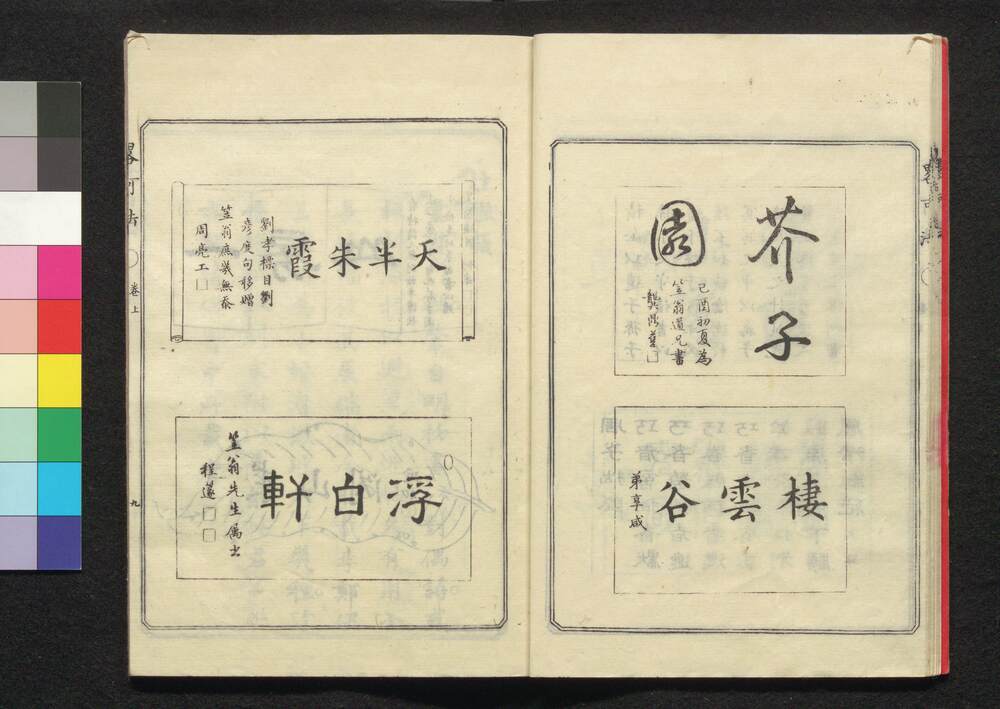 芥子
園
己酉初夏為
笠翁道兄書
龔鼎孳
棲雲谷
弟享咸
天半朱霞
劉孝標目劉
彦度句移贈
笠翁庶幾無忝
周亮工
浮白軒
笠翁先生属书
程邃
卷上
九